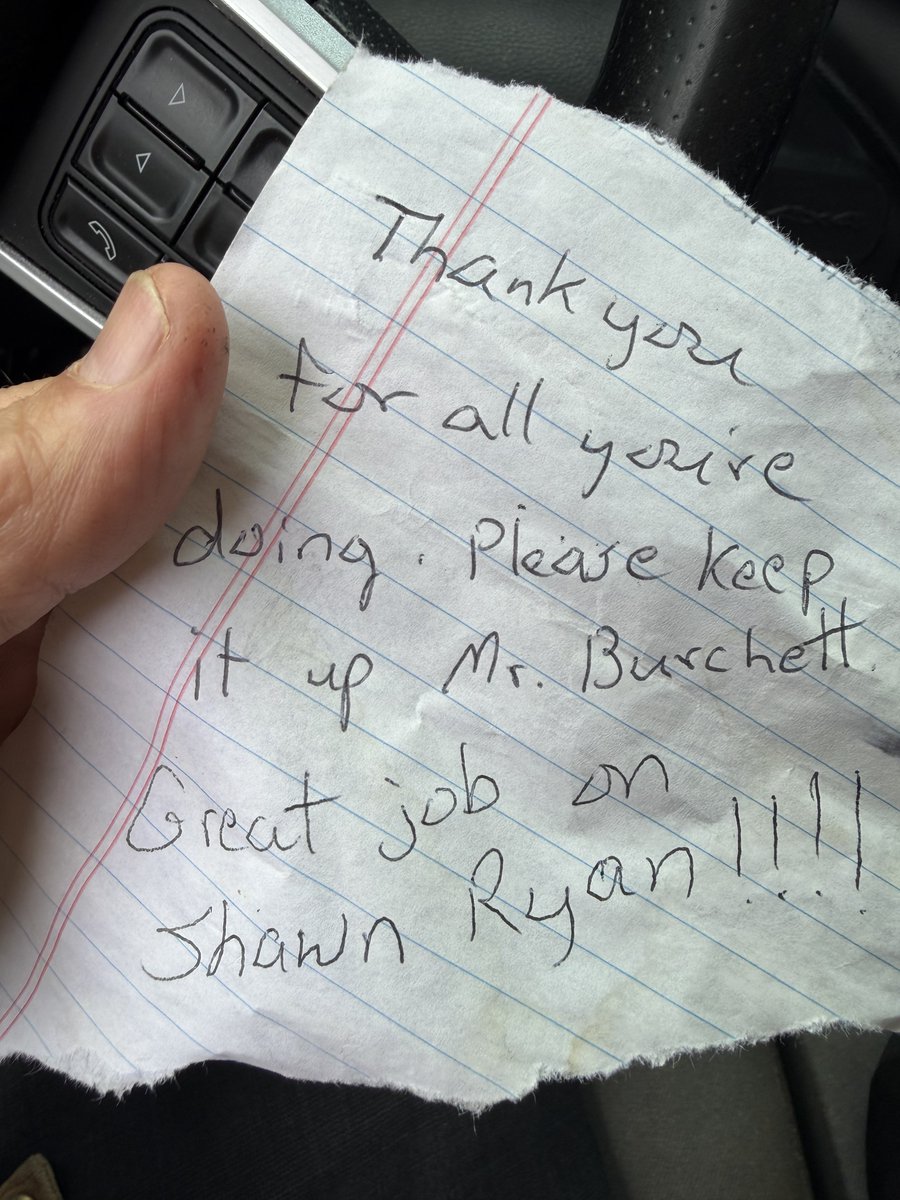 Thank you
for all you're
doing. Please keep
it up Mr. Burchett.
Great job on
Shawn Ryan!!!!